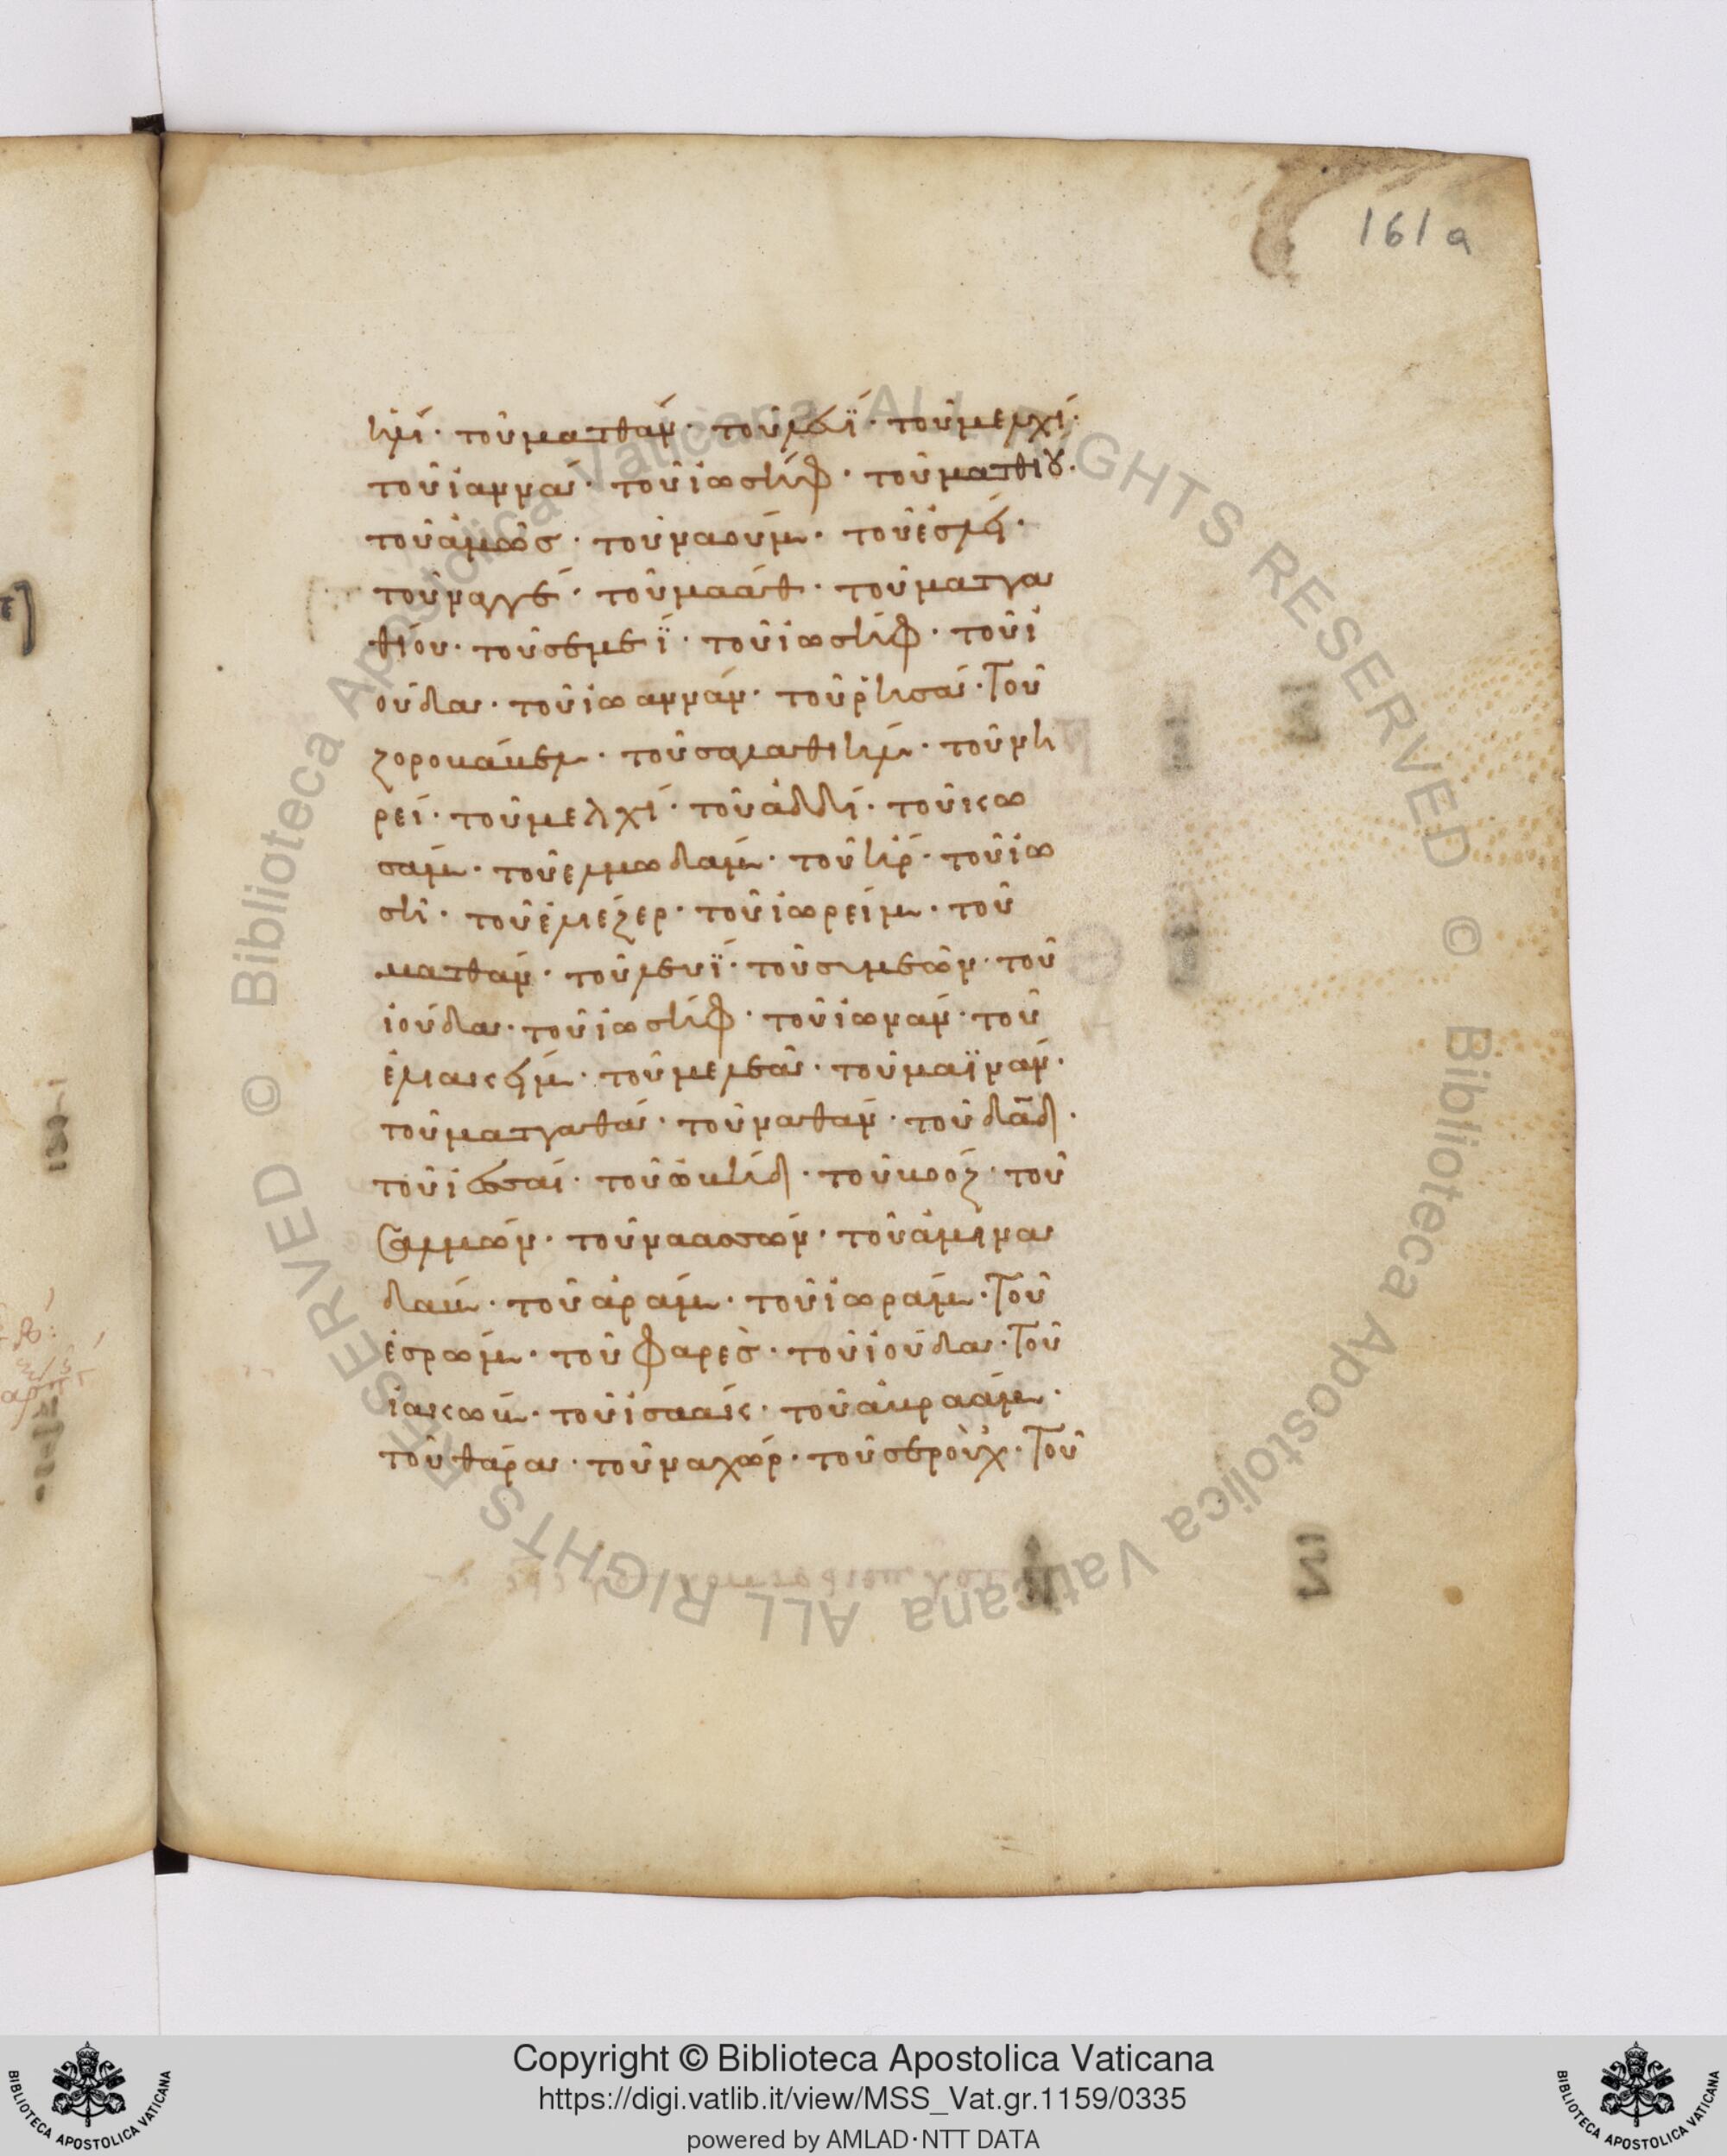 161a
ηλί· τοῦ ματθάν· τοῦ λευΐ· τοῦ μελχί·
τοῦ ἰαννά· τοῦ ἰωσήφ· τοῦ ματθίου·
τοῦ ἀμῶσ· τοῦ ναούμ· τοῦ ἐσλί·
τοῦ ναγγέ· τοῦ μαάθ· τοῦ ματτα
θίου· τοῦ σεμεΐ· τοῦ ἰωσήφ· τοῦ ἰ
ούδα· τοῦ ἰωαννάν· τοῦ ῥησά· Τοῦ
ζοροβάβελ· τοῦ σαλαθιήλ· τοῦ νη
ρεί· τοῦ μελχί· τοῦ ἀδδί· τοῦ κω
σάμ· τοῦ ἐλμωδάμ· τοῦ ἤρ· τοῦ ἰω
σῆ· τοῦ ἐλιέζερ· τοῦ ἰωρείμ· τοῦ
ματθάν· τοῦ λευΐ· τοῦ σιμεῶν· τοῦ
ἰούδα· τοῦ ἰωσήφ· τοῦ ἰωνάν· τοῦ
ἐλιακείμ· τοῦ μελεᾶ· τοῦ μαϊνάν·
τοῦ ματταθά· τοῦ ναθάν· τοῦ δᾱδ·
τοῦ ἰεσσαί· τοῦ ὠβήδ· τοῦ βοόζ· τοῦ
σαλμών· τοῦ ναασσών· τοῦ ἀμινα
δάβ· τοῦ ἀράμ· τοῦ ἰωράμ· Τοῦ
ἐσρώμ· τοῦ φαρὲσ· τοῦ ἰούδα· Τοῦ
ἰακώβ· τοῦ ἰσαάκ· τοῦ ἀβραάμ·
τοῦ θάρα· τοῦ ναχώρ· τοῦ σεροὺχ· Τοῦ
Copyright © Biblioteca Apostolica Vaticana
https://digi.vatlib.it/view/MSS_Vat.gr.1159/0335
powered by AMLAD·NTT DATA
BIBLIOTECA APOSTOLICA VATICANA
BIBLIOTECA APOSTOLICA VATICANA
© Biblioteca Apostolica Vaticana ALL RIGHTS RESERVED
© Biblioteca Apostolica Vaticana ALL RIGHTS RESERVED